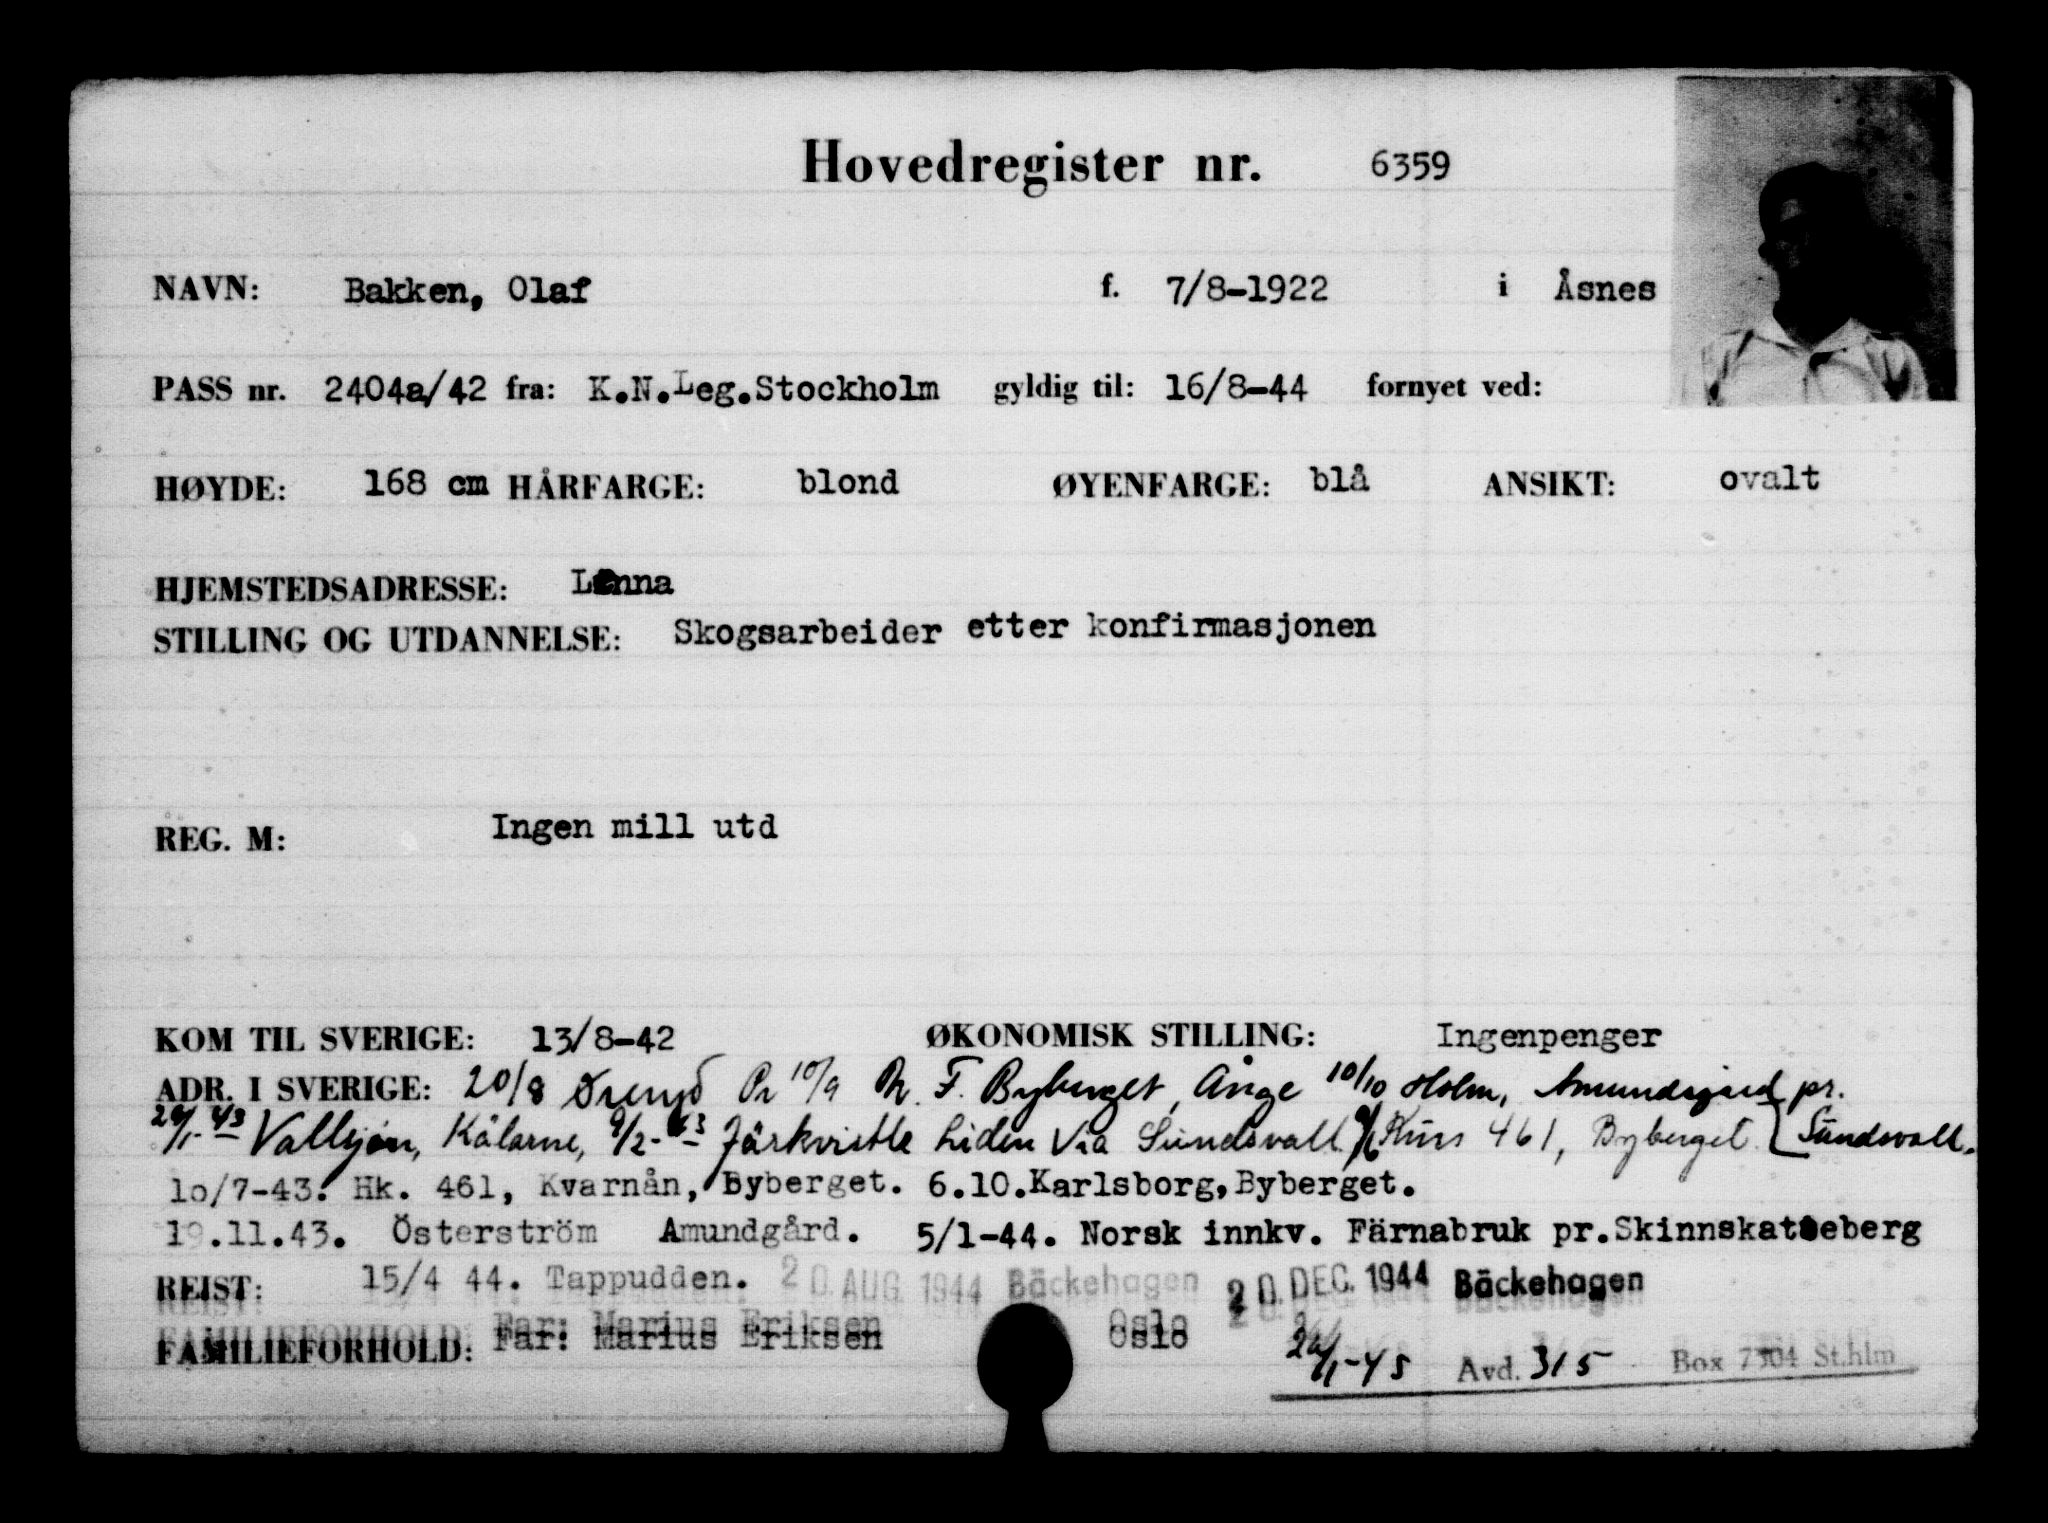 Hovedregister nr. 6359
NAVN: Bakken, Olaf f. 7/8-1922 i Åsnes
PASS nr. 2404a/42 fra: K.N.Leg.Stockholm gyldig til: 16/8-44 fornyet ved:
HØYDE: 168 cm HÅRFARGE: blond ØYENFARGE: blå ANSIKT: ovalt
HJEMSTEDSADRESSE:
STILLING OG UTDANNELSE: Skogsarbeider etter konfirmasjonen
REG. M: Ingen mill utd
KOM TIL SVERIGE: 13/8-42 ØKONOMISK STILLING: Ingenpenger
ADR. I SVERIGE: 20/8 10/9 F. Byberget, Ånge 10/10 Holm, pr.
Vallsjön, Kälarne, 9/2-43 Järkvistle Liden via Sundsvall Kurs 461, Byberget. Sundsvall.
10/7-43. Hk. 461, Kvarnån, Byberget. 6.10.Karlsborg,Byberget.
19.11.43. Österström Amundgård. 5/1-44. Norsk innkv. Färnabruk pr.Skinnskatteberg
REIST: 15/4 44. Tappudden. 20. AUG. 1944 Bäckehagen 20. DEC. 1944 Bäckehagen
FAMILIEFORHOLD: Far: Marius Eriksen Oslo
Avd. 315 Box 7304 St.hlm